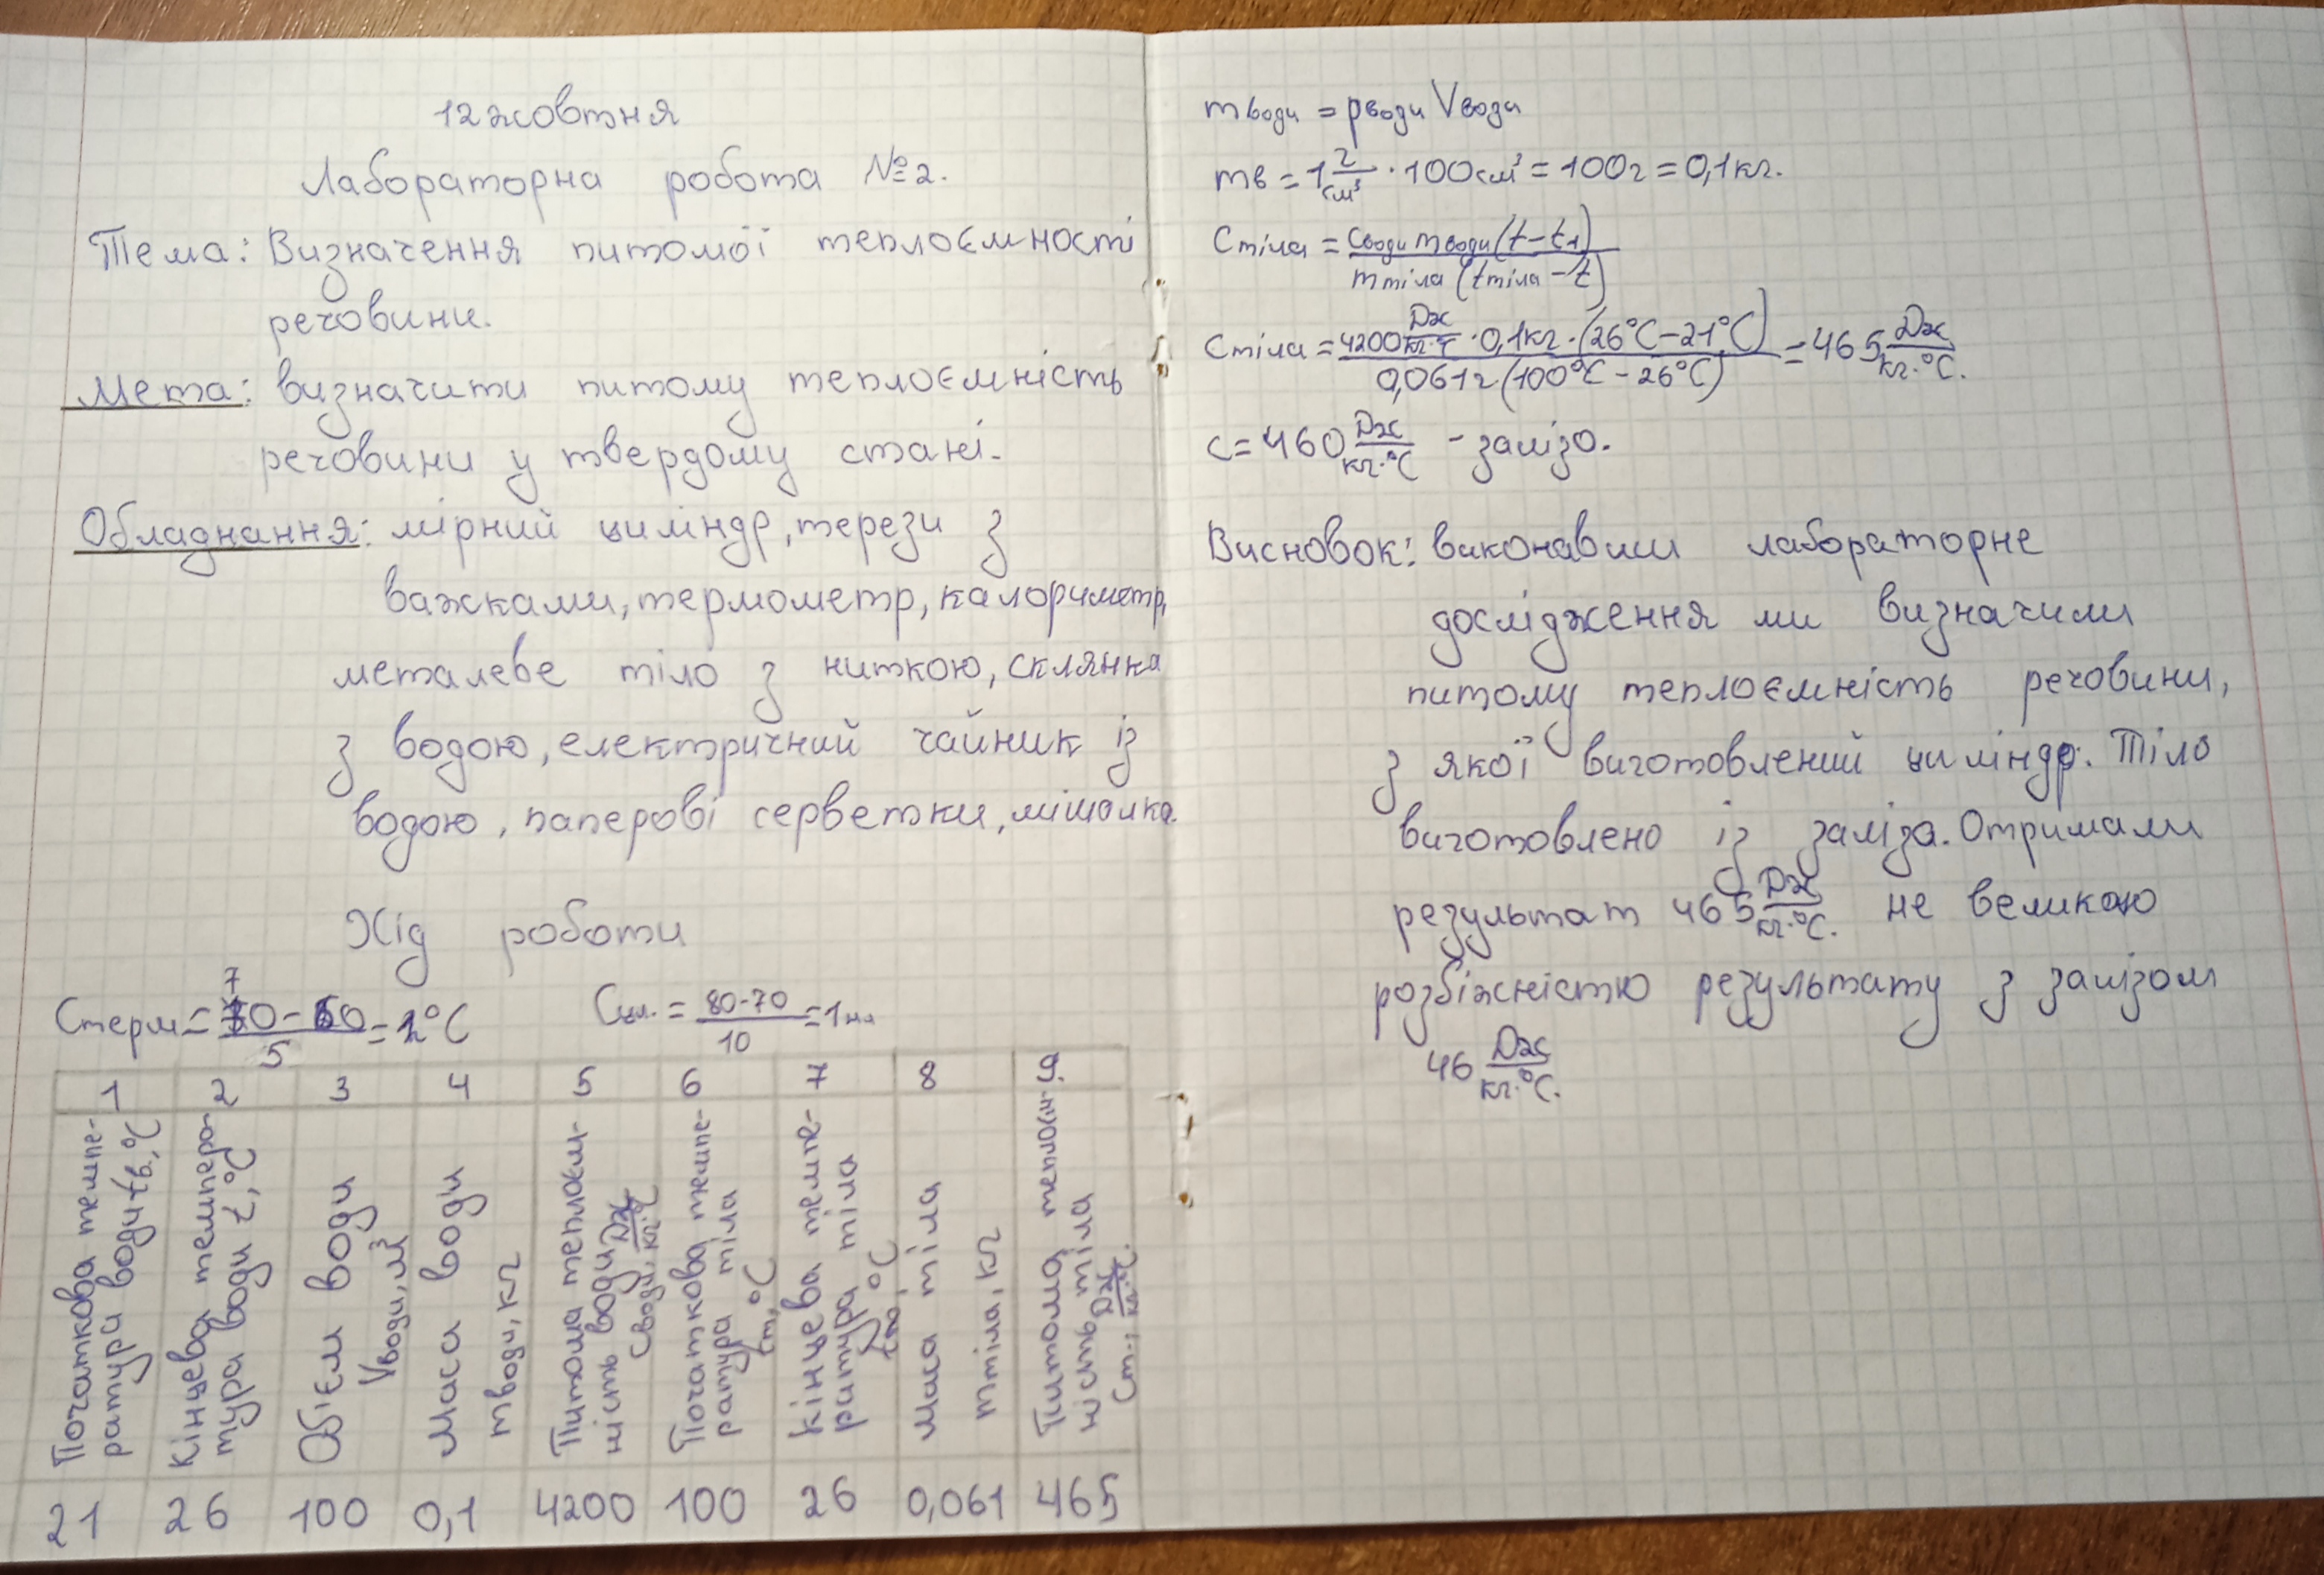 12 жовтня
Лабораторна робота №2.
Тема: Визначення питомої теплоємності
речовини.
Мета: визначити питому теплоємність
речовини у твердому стані.
Обладнання: мірний циліндр, терези з
важками, термометр, калориметр,
металеве тіло з ниткою, склянка
з водою, електричний чайник із
водою, паперові серветки, мішалка.
Хід роботи
Cтерм = (70-60)/5 = 2°C    Cцил. = (80-70)/10 = 1мл
1 2 3 4 5 6 7 8 9.
Початкова температури води tв., °C
Кінцева температура води t, °C
Обієм води Vводи, м³
Маса води mводи, кг
Питома теплоємність води Своди, Дж/кг·°C
Початкова температура тіла tт, °C
Кінцева температура тіла tт, °C
Маса тіла mтіла, кг
Питома теплоємність тіла Cт., Дж/кг·°C.
21 26 100 0,1 4200 100 26 0,061 465
mводи = ρводи Vводи
mв = 1 г/см³ · 100см³ = 100г = 0,1кг.
Cтіла = Cводи mводи (t-t1) / mтіла (tтіла - t)
Cтіла = 4200 Дж/кг·°C · 0,1кг · (26°C-21°C) / 0,061г (100°C - 26°C) = 465 Дж/кг·°C.
c = 460 Дж/кг·°C - залізо.
Висновок: виконавши лабораторне
дослідження ми визначили
питому теплоємність речовини,
з якої виготовлений циліндр. Тіло
виготовлено із заліза. Отримали
результат 465 Дж/кг·°C. не великою
розбіжністю результату з залізом
46 Дж/кг·°C.